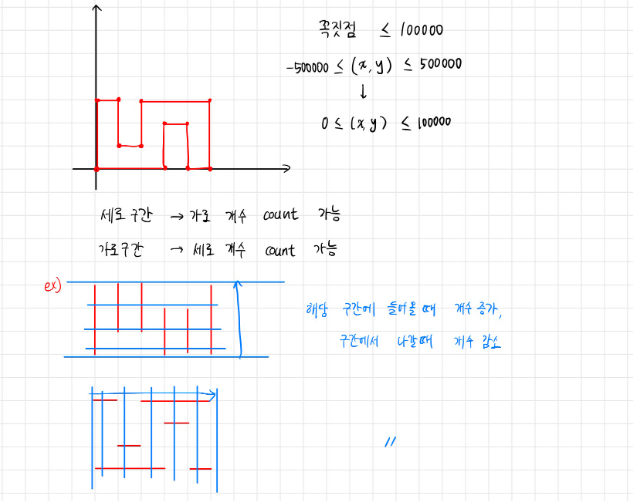 꼭짓점 ≤ 100000
-500000 ≤ (x, y) ≤ 500000
↓
0 ≤ (x, y) ≤ 100000
세로 구간 → 가로 개수 count 가능
가로구간 → 세로 개수 count 가능
ex)
해당 구간에 들어올 때 개수 증가,
구간에서 나갈때 개수 감소
//